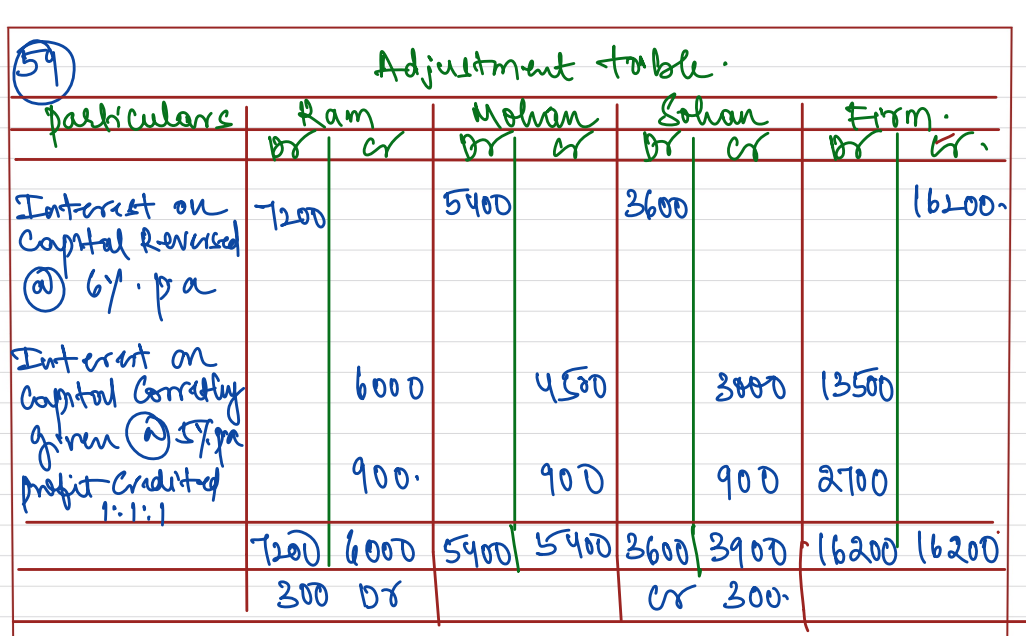 59 Adjustment table.
Particulars Ram Mohan Sohan Firm.
Dr Cr Dr Cr Dr Cr Dr Cr.
Interest on 7200 5400 3600 16200.
Capital Reversed
@ 6%. p a
Interest on
Capital Correctly 6000 4500 3000 13500
given @ 5% pa
profit Credited 900. 900 900 2700
1:1:1
7200 6000 5400 5400 3600 3900 16200 16200
300 Dr Cr 300.